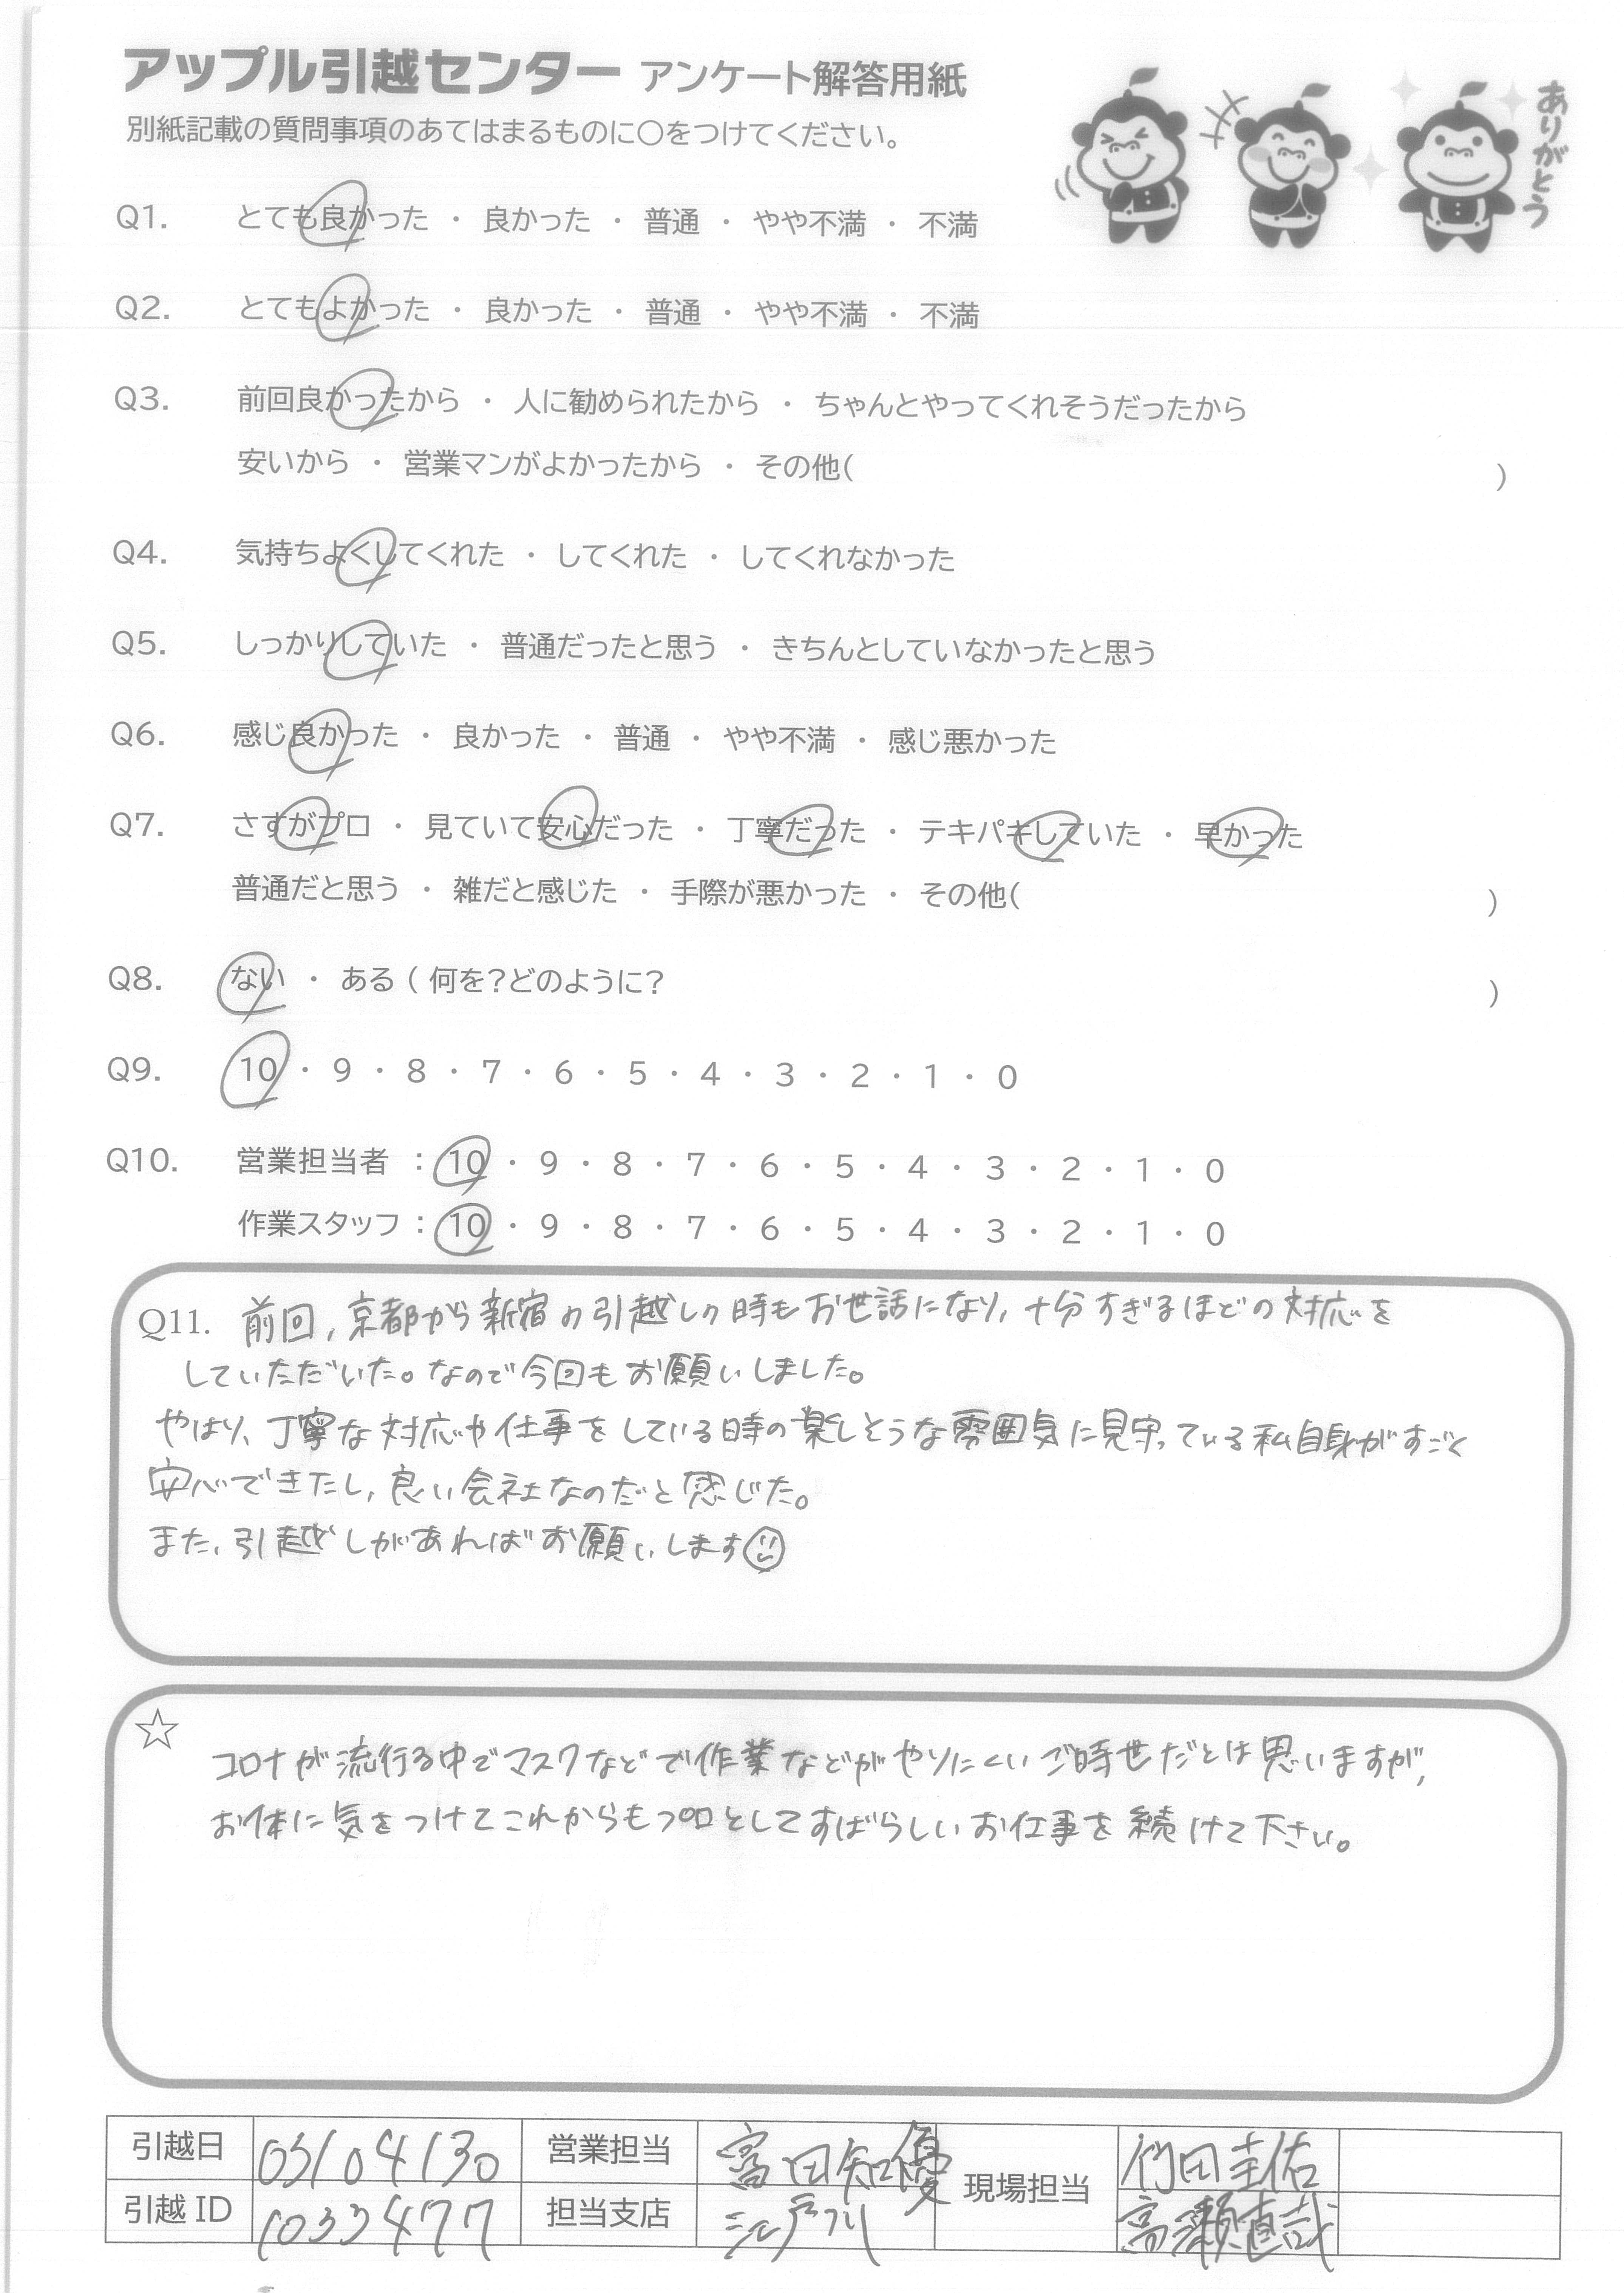 アップル引越センター アンケート解答用紙
ありがとう
別紙記載の質問事項のあてはまるものに〇をつけてください。
Q1. とても良かった ・ 良かった ・ 普通 ・ やや不満 ・ 不満
Q2. とてもよかった ・ 良かった ・ 普通 ・ やや不満 ・ 不満
Q3. 前回良かったから ・ 人に勧められたから ・ ちゃんとやってくれそうだったから
安いから ・ 営業マンがよかったから ・ その他( )
Q4. 気持ちよくしてくれた ・ してくれた ・ してくれなかった
Q5. しっかりしていた ・ 普通だったと思う ・ きちんとしていなかったと思う
Q6. 感じ良かった ・ 良かった ・ 普通 ・ やや不満 ・ 感じ悪かった
Q7. さすがプロ ・ 見ていて安心だった ・ 丁寧だった ・ テキパキしていた ・ 早かった
普通だと思う ・ 雑だと感じた ・ 手際が悪かった ・ その他( )
Q8. ない ・ ある ( 何を?どのように? )
Q9. 10 ・ 9 ・ 8 ・ 7 ・ 6 ・ 5 ・ 4 ・ 3 ・ 2 ・ 1 ・ 0
Q10. 営業担当者 : 10 ・ 9 ・ 8 ・ 7 ・ 6 ・ 5 ・ 4 ・ 3 ・ 2 ・ 1 ・ 0
作業スタッフ : 10 ・ 9 ・ 8 ・ 7 ・ 6 ・ 5 ・ 4 ・ 3 ・ 2 ・ 1 ・ 0
Q11. 前回、京都から新宿の引越しの時もお世話になり、十分すぎるほどの対応を
していただいた。なので今回もお願いしました。
やはり、丁寧な対応や仕事をしている時の楽しそうな雰囲気に見守っている私自身がすごく
安心できたし、良い会社なのだと感じた。
また、引越しがあればお願いします
☆
コロナが流行る中でマスクなどで作業などがやりにくいご時世だとは思いますが、
お体に気をつけてこれからもプロとしてすばらしいお仕事を続けて下さい。
引越日 03/04/30 営業担当 富田知優 現場担当 竹田圭佑
引越ID 1033477 担当支店 江戸川 高瀬直哉